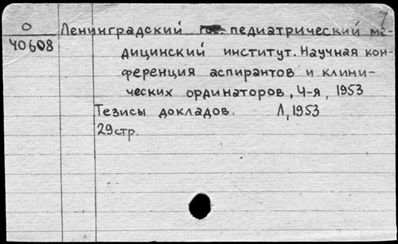 О
40608
Ленинградский педиатрический ме-
дицинский институт. Научная кон-
ференция аспирантов и клини-
ческих ординаторов, 4-я, 1953
Тезисы докладов. Л, 1953
29стр.